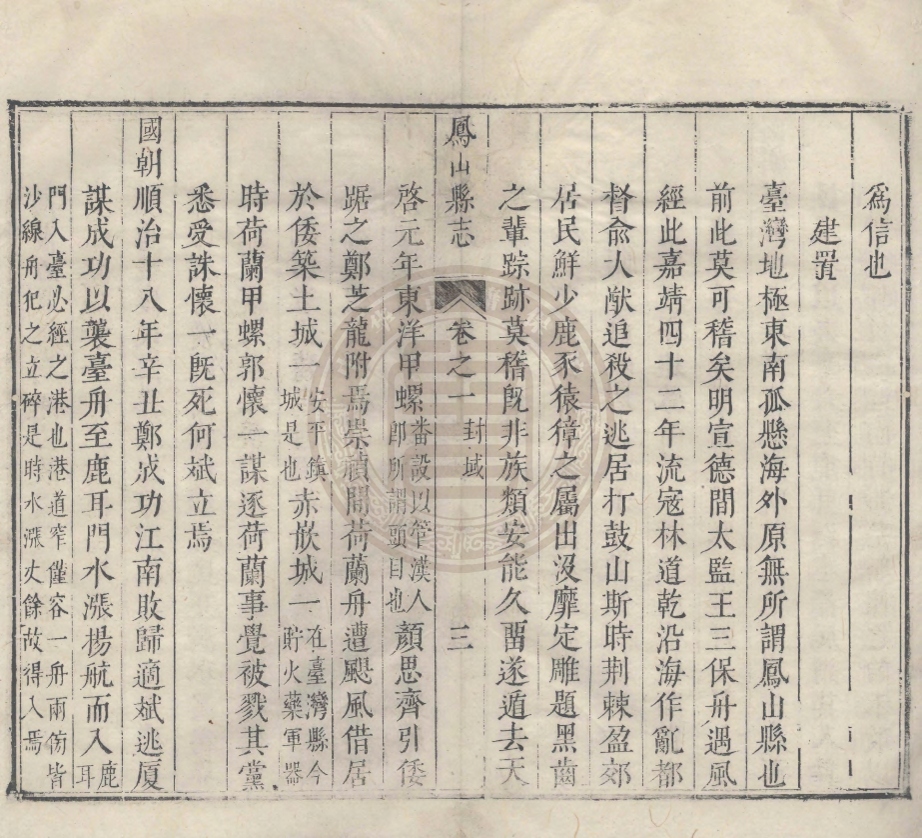 爲信也
建置
臺灣地極東南孤懸海外原無所謂鳳山縣也
前此莫可稽矣明宣德間太監王三保舟遇風
經此嘉靖四十二年流寇林道乾沿海作亂都
督俞大猷追殺之逃居打鼓山斯時荆棘盈郊
居民鮮少鹿豕猿獐之屬出沒靡定雕題黑齒
之輩踪跡莫稽旣非族類安能久畱遂遁去天
鳳山縣志 卷之一 封域 三
啓元年東洋甲螺番設以管漢人卽所謂頭目也顏思齊引倭
踞之鄭芝龍附焉崇禎間荷蘭舟遭颶風借居
於倭築土城一安平鎮城是也赤嵌城一在臺灣縣今貯火藥軍器
時荷蘭甲螺郭懷一謀逐荷蘭事覺被戮其黨
悉受誅懷一旣死何斌立焉
國朝順治十八年辛丑鄭成功江南敗歸適斌逃厦
謀成功以襲臺舟至鹿耳門水漲揚航而入鹿耳
門入臺必經之港也港道窄僅容一舟兩傍皆
沙線舟犯之立碎是時水漲丈餘故得入焉